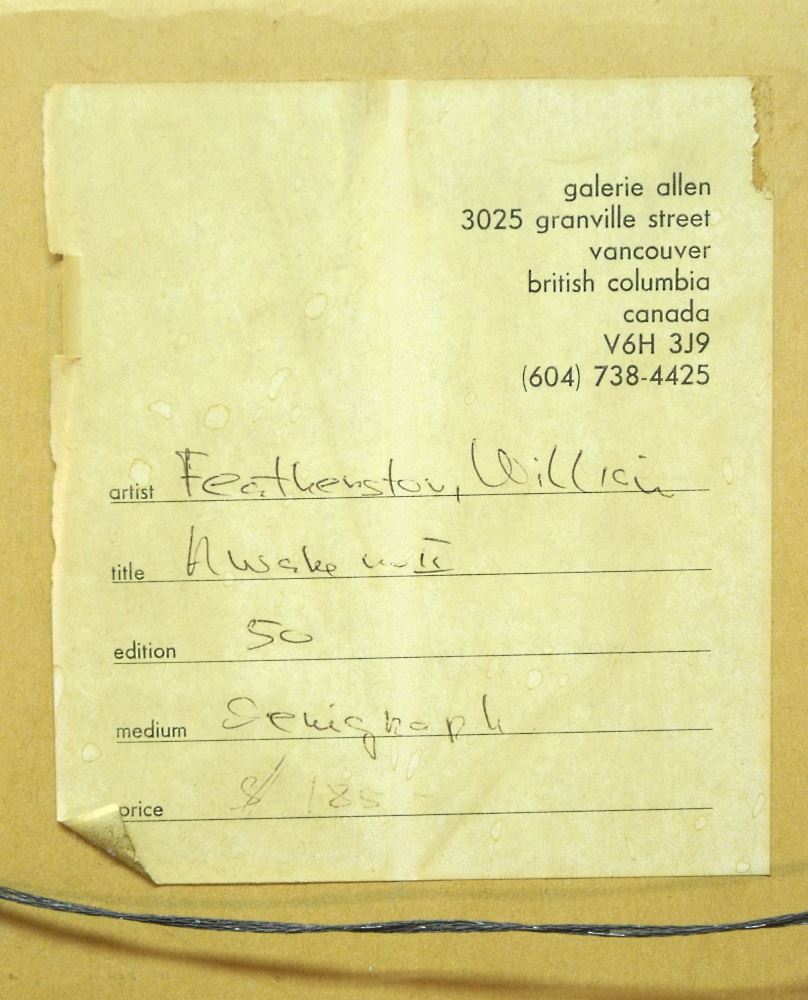 galerie allen
3025 granville street
vancouver
british columbia
canada
V6H 3J9
(604) 738-4425
artist Featherston, William
title Awake no II
edition 50
medium Serigraph
price $ 185 -